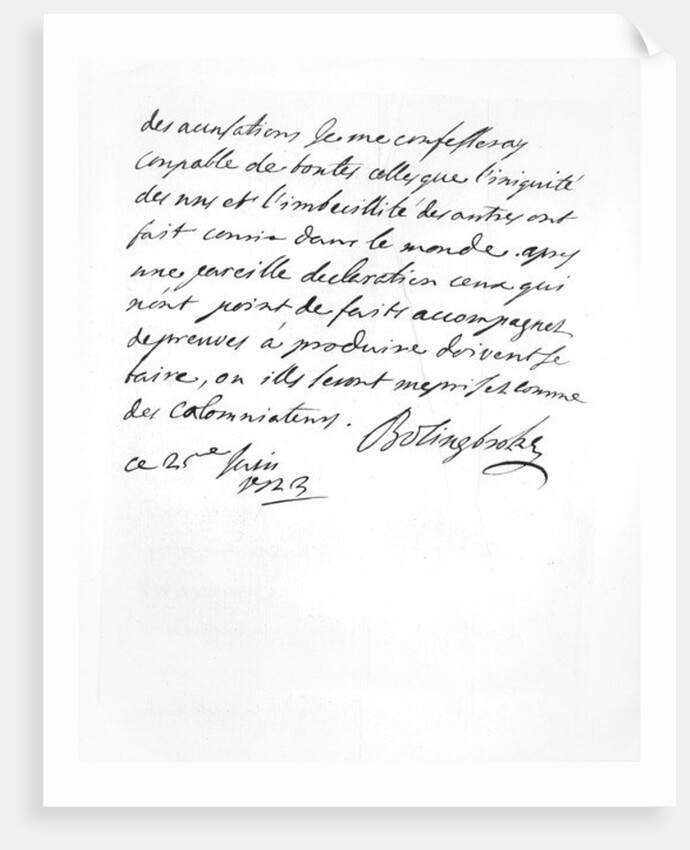 des accusations Je me confesseray
coupable de toutes celles que l'iniquité
des uns et l'imbecillité des autres ont
fait courir dans le monde. apres
une pareille declaration ceux qui
n'ont point de faits accompagnez
de preuves à produire doivent se
taire, ou ills seront meprisez comme
des calomniateurs.
Bolingbroke
ce 25me Juin
1723